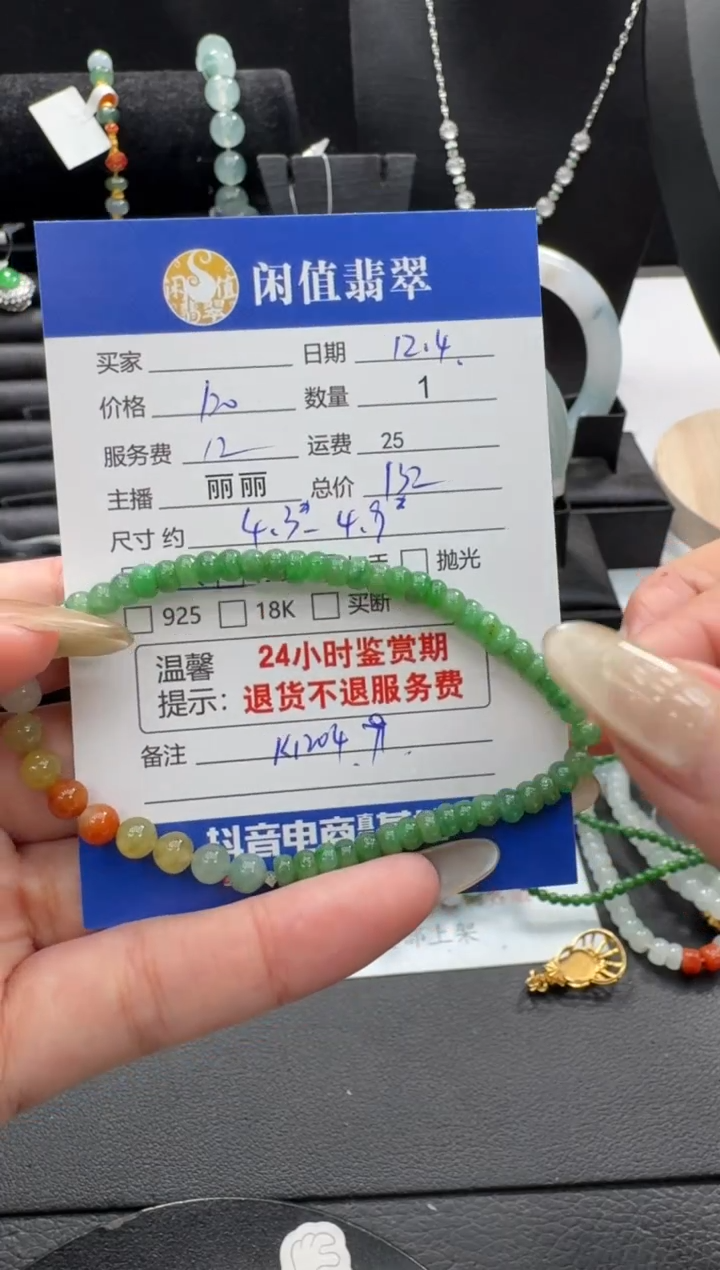 闲值翡翠
闲值翡翠
买家 日期 12.4.
价格 120 数量 1
服务费 12 运费 25
主播 丽丽 总价 152
尺寸 约 4.3*-4.9*
抛光
925 18K 买断
温馨提示: 24小时鉴赏期
退货不退服务费
备注 K1204.
抖音电商
上架